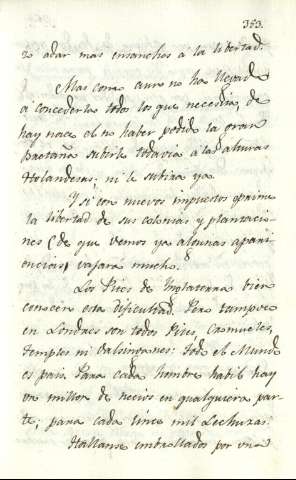 353.
to adar mas ensanches á la libertad.
Mas como aun no ha llegado
á concederla todos los que necesita; de
hay nace el no haber podido la gran
Bretaña subirla todavia á las alturas
Holandesas; ni le subira ya.
Y si con nuevos impuestos oprime
la libertad de sus colonias y plantacio-
nes (de que vemos ya algunas apari-
encias) vajará mucho.
Los Pites de Inglaterra bien
conocen esta dificultad. Pero tampoco
en Londres son todos Pites,
Temples ni Valsinganes: todo el Mundo
es pais. Para cada hombre habil hay
un millon de necios en qualquiera par-
te; para cada lince mil Lechuzas.
Hallanse embrollados por una